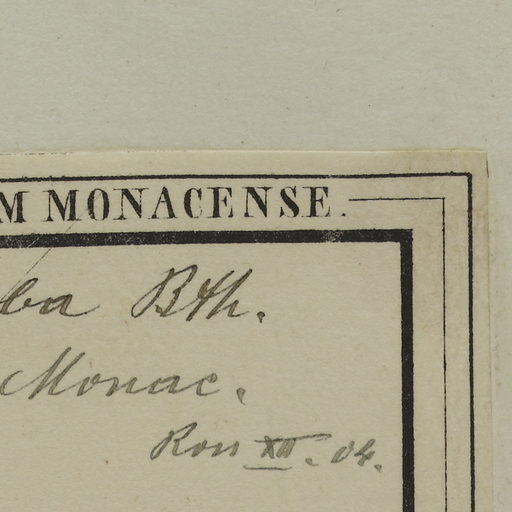 M MONACENSE.
ba Bth.
Monac.
Ross XII. 04.